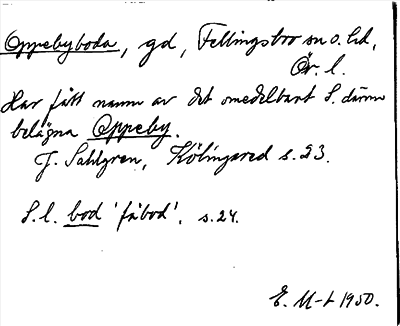 Oppebyboda, gd, Fellingsbro sn o. hd,
Ör. l.
Har fått namn av det omedelbart S. därom
belägna Oppeby.
J. Sahlgren, Kölingared s. 23.
S.l. bod 'fäbod'. s. 24.
E. M-t 1950.